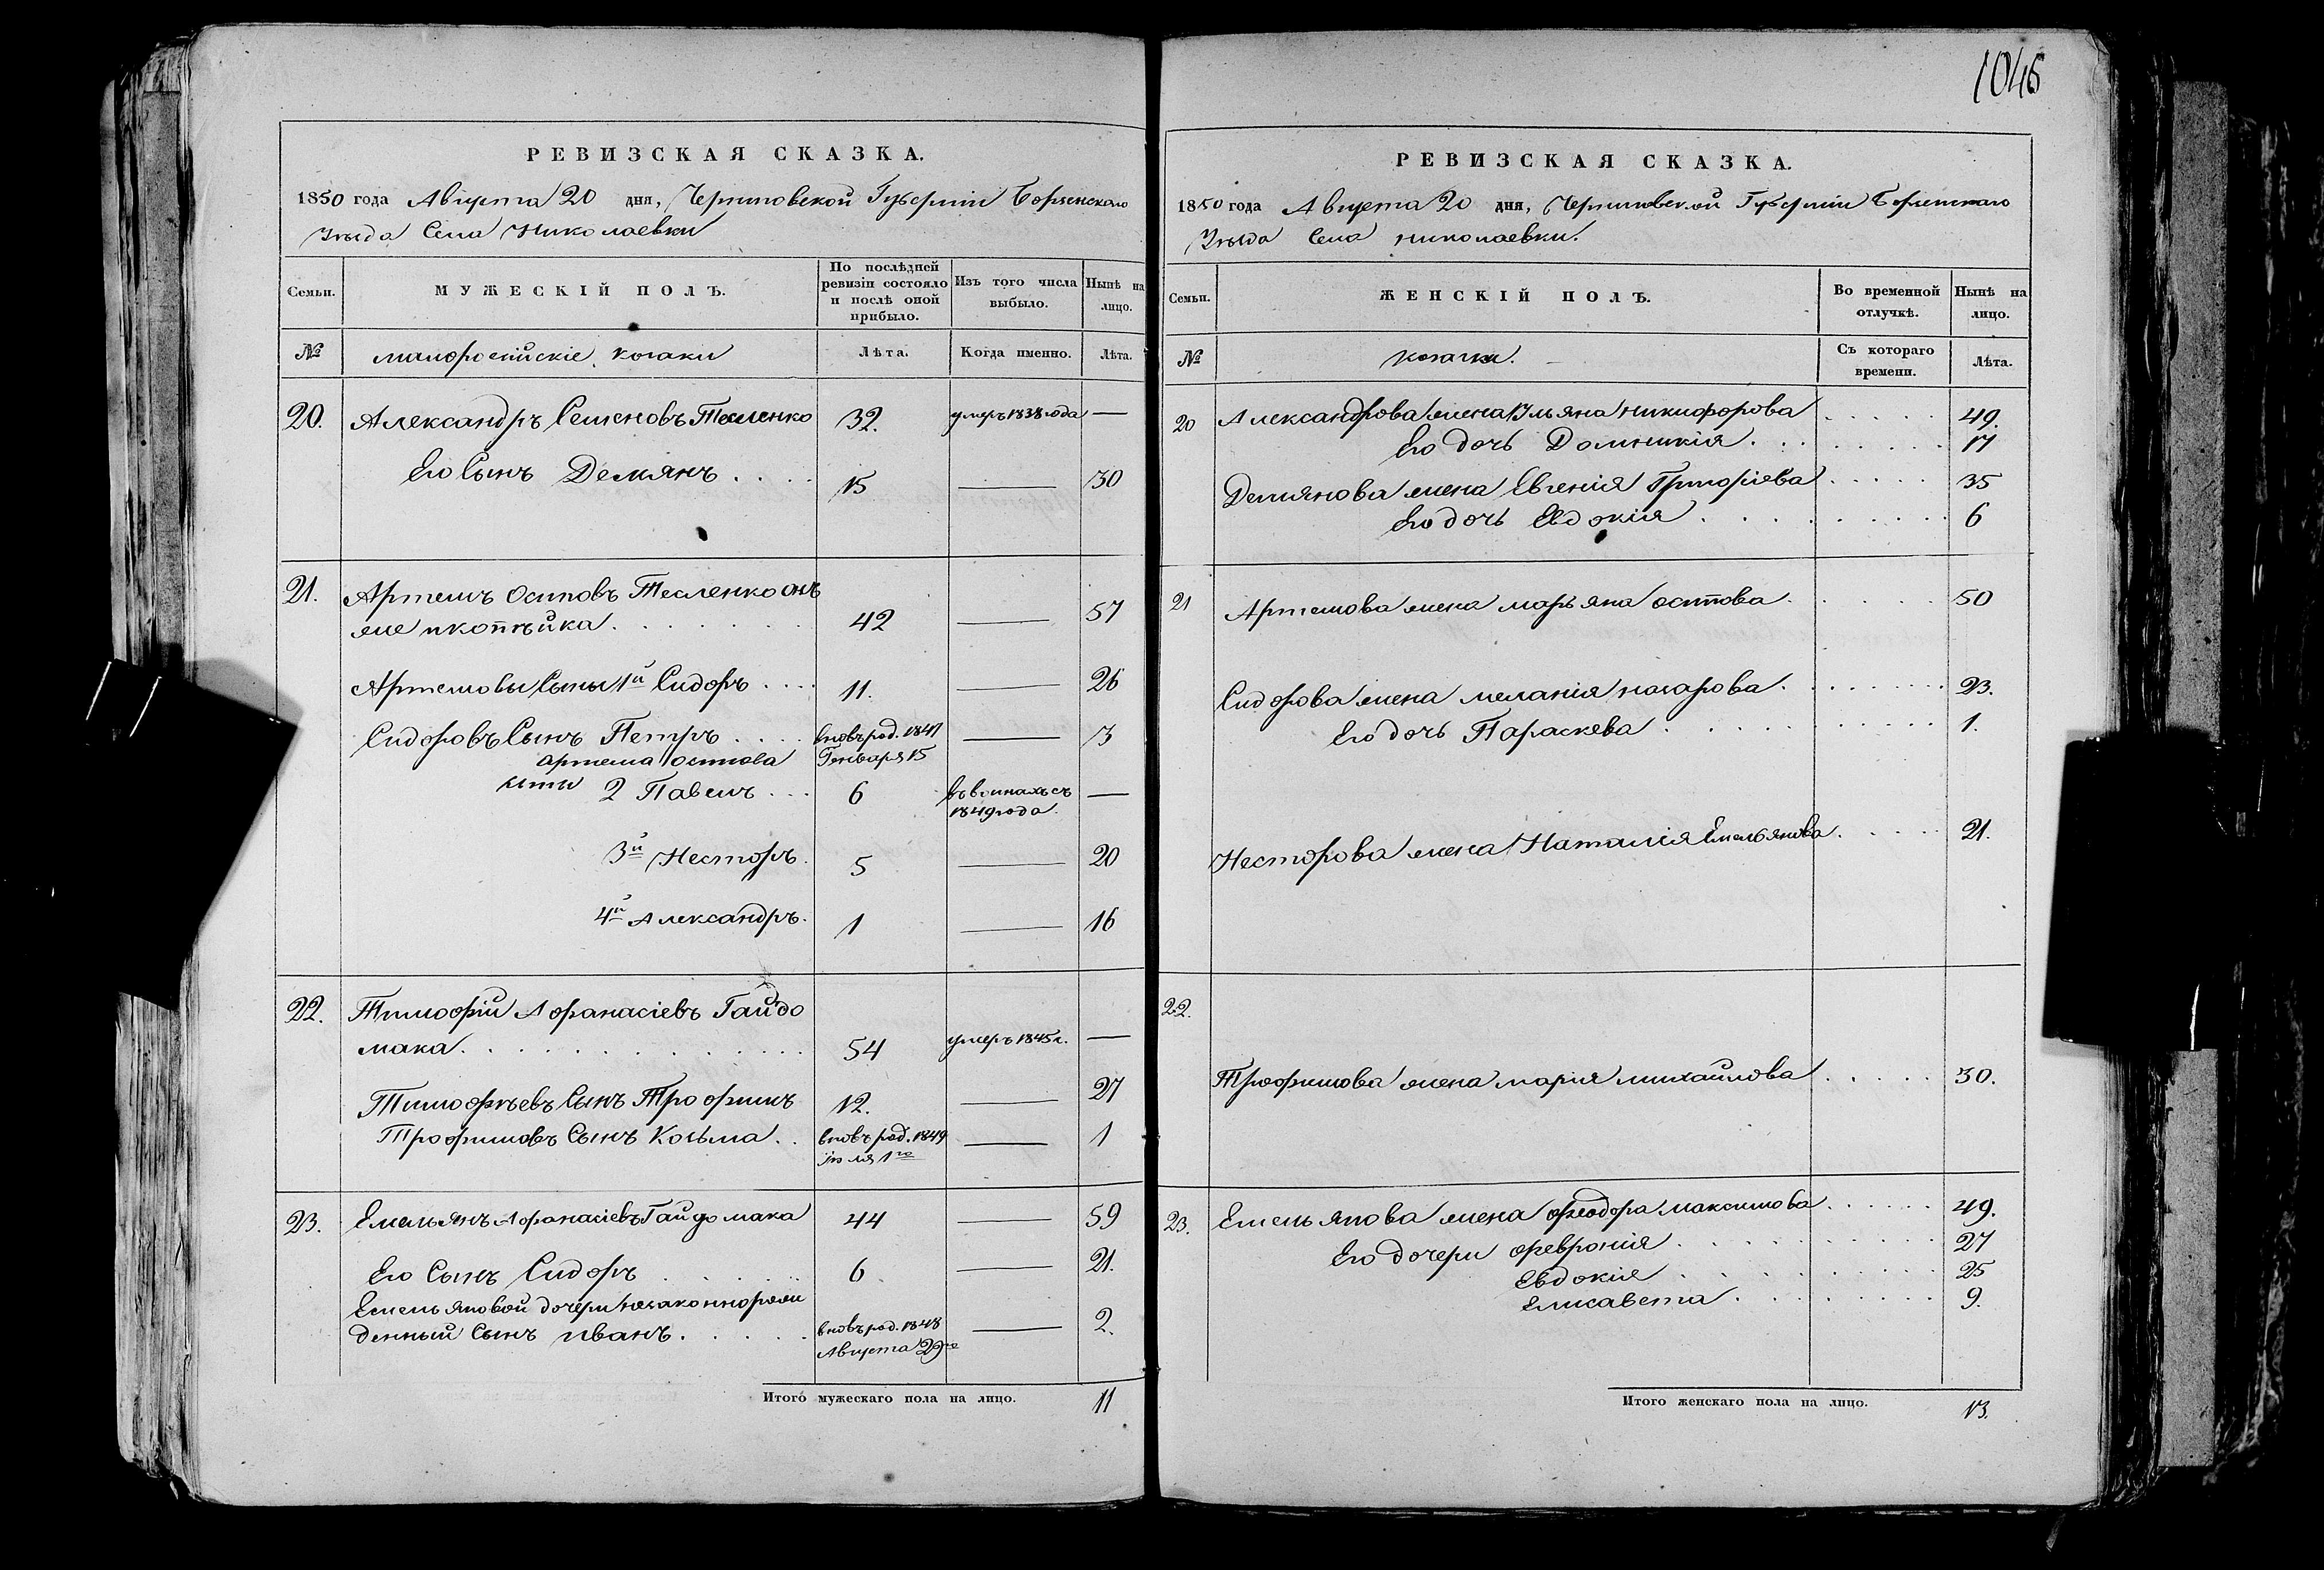 1046
РЕВИЗСКАЯ СКАЗКА.
1850 года Августа 20 дня, Черниговской Губерніи Борзенскаго
Уѣзда Села Николаевки
Семьи.
МУЖЕСКІЙ ПОЛЪ.
По послѣдней ревизіи состояло и послѣ оной прибыло.
Изъ того числа выбыло.
Нынѣ на лицо.
№
малоросійскіе козаки
Лѣта.
Когда именно.
Лѣта.
20. Александръ Семеновъ Тесленко 32. умеръ 1838 года —
Его Сынъ Демянъ 15 — 30
21. Артемъ Осиповъ Тесленко онъ
же и копѣйка 42 — 57
Артемовы Сыны 1й Сидоръ 11. — 26
Сидоровъ Сынъ Петръ вновь род. 1847 — 3
Артема Осипова Генваря 15
2 Павелъ 6 въ воинахъ съ —
1849 года.
3й Несторъ 5 — 20
4й Александръ 1 — 16
22. Тимофій Афанасіевъ Гайдо
мака 54 умеръ 1845 г. —
Тимофѣевъ Сынъ Трофимъ 12. — 27
Трофимовъ Сынъ Козьма вновь род. 1849 — 1
іюля 1го
23. Емельянъ Афанасіевъ Гайдомака 44 — 59
Его Сынъ Сидоръ 6 — 21.
Емельяновой дочери незаконнорож
денный Сынъ Иванъ вновь род. 1848 — 2.
Августа 29го
Итого мужескаго пола на лицо. 11
РЕВИЗСКАЯ СКАЗКА.
1850 года Августа 20 дня, Черниговской Губерніи Борзенскаго
Уѣзда Села Николаевки.
Семьи.
ЖЕНСКІЙ ПОЛЪ.
Во временной отлучкѣ.
Нынѣ на лицо.
№
козачки.
Съ котораго времени.
Лѣта.
20 Александрова жена Ульяна Никифорова 49.
Его дочь Домникія 17
Демянова жена Евгенія Григоріева 35
Его дочь Евдокія 6
21 Артемова жена Марьяна Осипова 50
Сидорова жена Меланія Назарова 23.
Его дочь Параскева 1.
Несторова жена Наталія Емельянова 21.
22.
Трофимова жена Марія Михайлова 30.
23. Емельянова жена Феодора Максимова 49.
Его дочери Февронія 27
Евдокія 25
Елисавета 9.
Итого женскаго пола на лицо. 13.